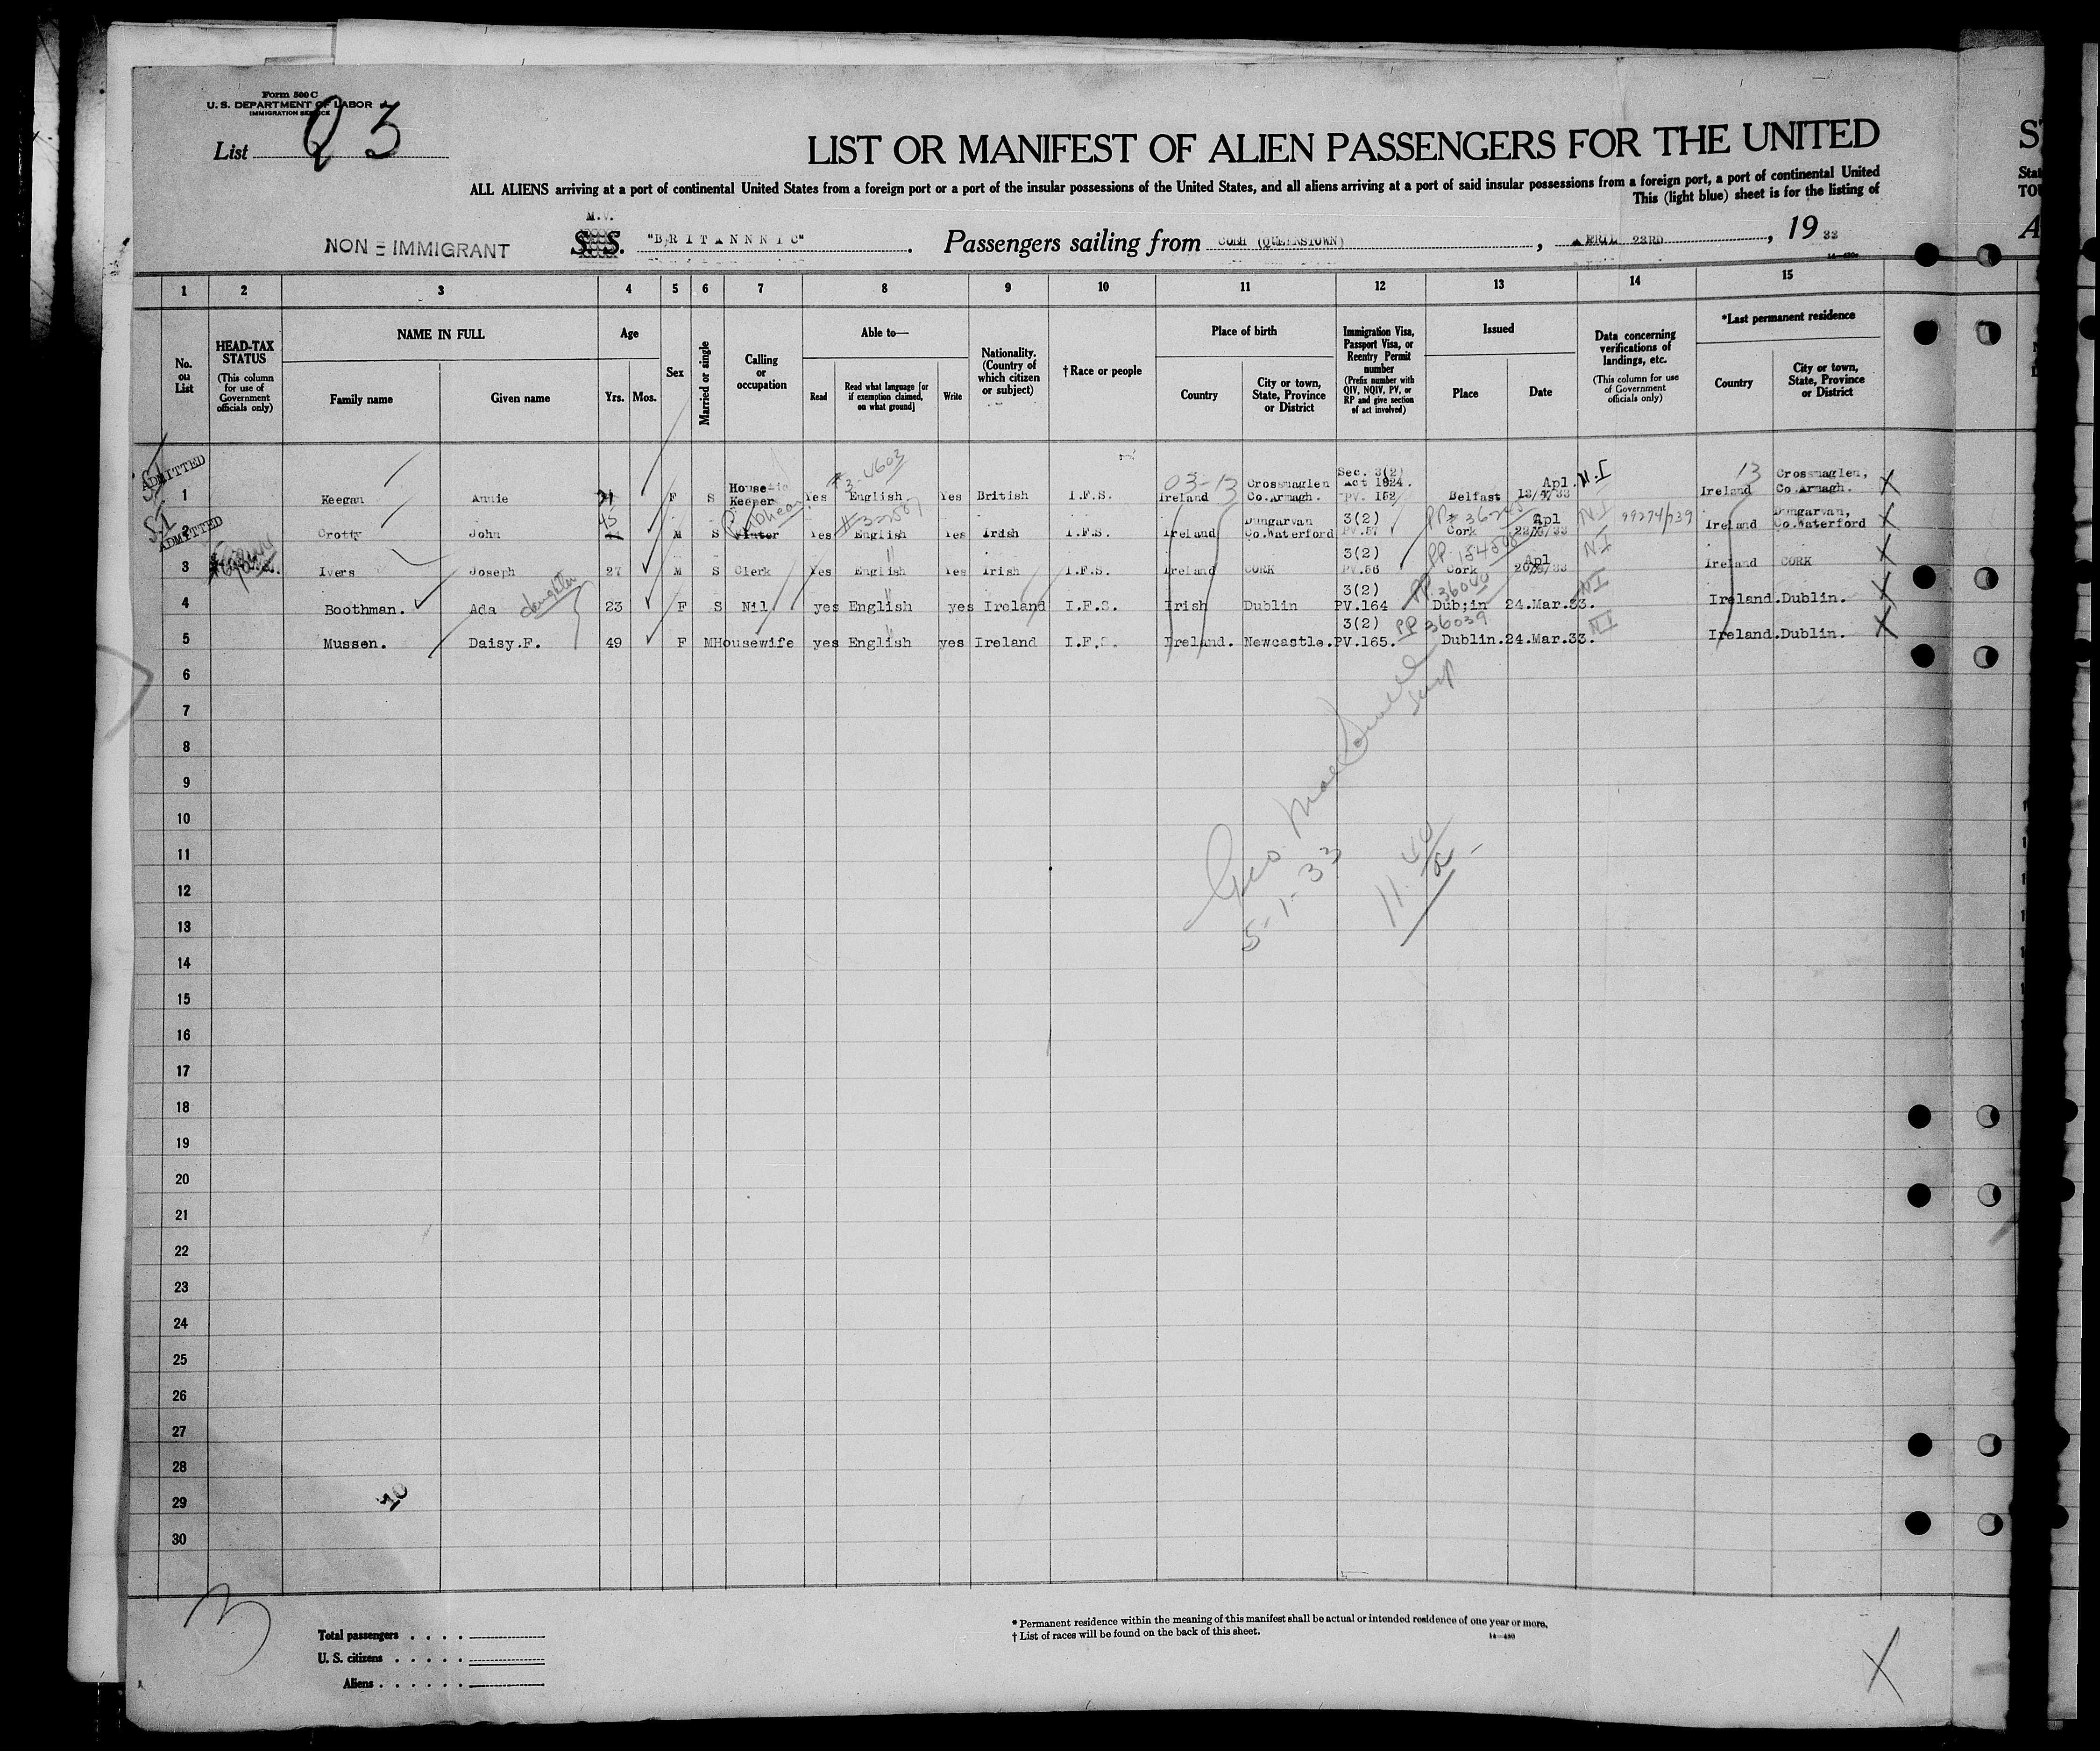 Form 500 C
U. S. DEPARTMENT OF LABOR
IMMIGRATION SERVICE
List 23
LIST OR MANIFEST OF ALIEN PASSENGERS FOR THE UNITED
ALL ALIENS arriving at a port of continental United States from a foreign port or a port of the insular possessions of the United States, and all aliens arriving at a port of said insular possessions from a foreign port, a port of continental United
This (light blue) sheet is for the listing of
NON-IMMIGRANT
M.V.
S. S. "BRITANNNIC". Passengers sailing from COBH (QUEENSTOWN), APRIL 23RD, 19 33
1 2 3 4 5 6 7 8 9 10 11 12 13 14 15
No. on List
HEAD-TAX STATUS
(This column for use of Government officials only)
NAME IN FULL
Family name Given name
Age
Yrs. Mos.
Sex
Married or single
Calling or occupation
Able to—
Read
Read what language [or if exemption claimed, on what ground]
Write
Nationality. (Country of which citizen or subject)
† Race or people
Place of birth
Country
City or town, State, Province or District
Immigration Visa, Passport Visa, or Reentry Permit number
(Prefix number with QIV, NQIV, PV, or RP and give section of act involved)
Issued
Place Date
Data concerning verifications of landings, etc.
(This column for use of Government officials only)
*Last permanent residence
Country
City or town, State, Province or District
ADMITTED
#3-4603
03-13
Sec. 3(2)
Act 1924.
Apl.
N.I
13
Crossmaglen,
1 Keegan Annie F S House Keeper Yes English Yes British I.F.S. Ireland Crossmaglen Co.Armagh. PV. 152 Belfast 13/4/33 Ireland Co.Armagh. X
SI
ADMITTED
45
3(2)
Apl
NI
99274/739
2 Crotty John M S Yes English Yes Irish I.F.S. Ireland Dungarvan Co.Waterford PV.57 Cork Ireland Dungarvan, Co.Waterford X
3(2)
Apl
NI
3 Ivers Joseph 27 M S Clerk Yes English Yes Irish I.F.S. Ireland CORK PV.56 Cork Ireland CORK X
daughter
3(2)
PP 36040
NI
4 Boothman. Ada 23 F S Nil yes English yes Ireland I.F.S. Irish Dublin PV.164 Dub;in 24.Mar.33. Ireland.Dublin. X
3(2)
PP 36039
NI
5 Mussen. Daisy.F. 49 F M Housewife yes English yes Ireland I.F.S. Ireland. Newcastle. PV.165. Dublin. 24.Mar.33. Ireland.Dublin. X
6
7
8
9
10
11
12
13
14
15
16
17
18
19
20
21
22
23
24
25
26
27
28
29
30
Geo.
5-1-33
10
3
Total passengers
U. S. citizens
Aliens
* Permanent residence within the meaning of this manifest shall be actual or intended residence of one year or more.
† List of races will be found on the back of this sheet.
14—430
X